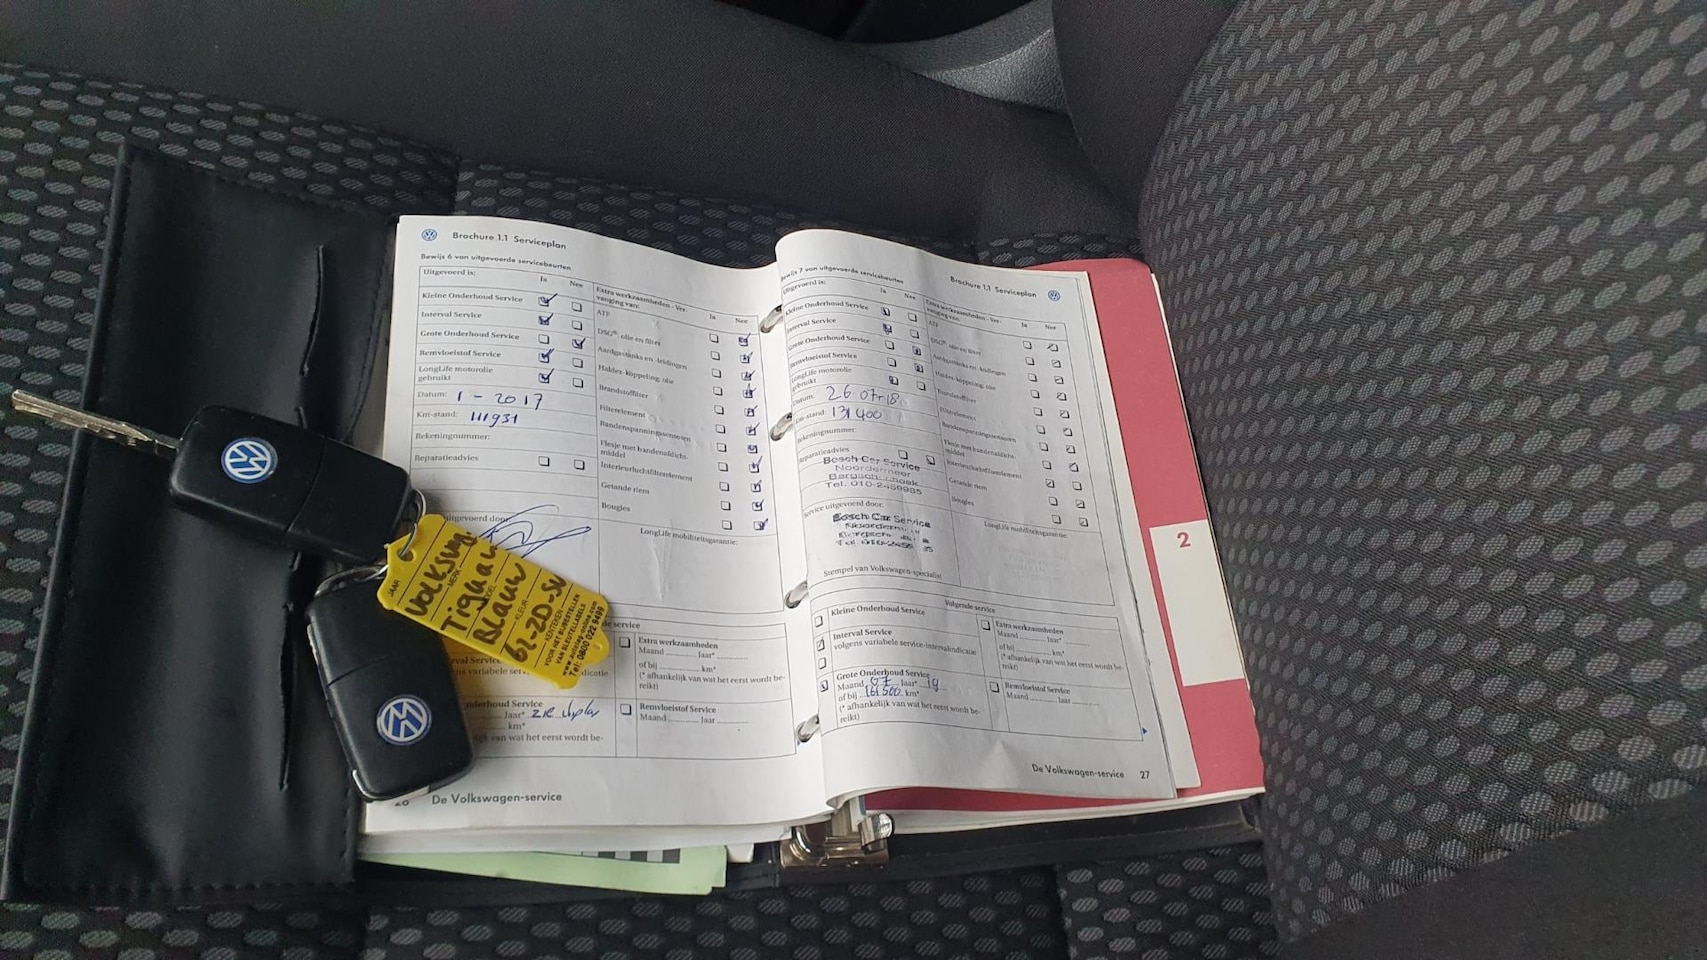 Brochure 1.1 Serviceplan
Bewijs 6 van uitgevoerde servicebeurten
Uitgevoerd is:
Ja
Nee
Kleine Onderhoud Service
Interval Service
Grote Onderhoud Service
Remvloeistof Service
LongLife motorolie
gebruikt
Datum: 1 - 2017
Km-stand: 111931
Rekeningnummer:
Reparatieadvies
uitgevoerd door:
Extra werkzaamheden - Ver-
vanging van:
Ja
Nee
ATF
DSG®, olie en filter
Aardgastanks en -leidingen
Haldex-koppeling, olie
Brandstoffilter
Filterelement
Bandenspanningssensoren
Flesje met bandenafdicht-
middel
Interieurluchtfilterelement
Getande riem
Bougies
LongLife mobiliteitsgarantie:
de service
Extra werkzaamheden
Maand Jaar*
of bij km*
(* afhankelijk van wat het eerst wordt be-
reikt)
Remvloeistof Service
Maand Jaar
nderhoud Service
Jaar*
km*
ijk van wat het eerst wordt be-
De Volkswagen-service
Bewijs 7 van uitgevoerde servicebeurten
Brochure 1.1 Serviceplan
Uitgevoerd is:
Ja
Nee
Kleine Onderhoud Service
Interval Service
Grote Onderhoud Service
Remvloeistof Service
LongLife motorolie
gebruikt
Datum: 26 07-18
Km-stand: 131400
Rekeningnummer:
Reparatieadvies
Bosch Car Service
Noordermeer
Bergschenhoek
Service uitgevoerd door:
Bosch Car Service
Stempel van Volkswagen-specialist
Extra werkzaamheden - Ver-
vanging van:
Ja
Nee
ATF
DSG®, olie en filter
Aardgastanks en -leidingen
Haldex-koppeling, olie
Brandstoffilter
Filterelement
Bandenspanningssensoren
Flesje met bandenafdicht-
middel
Interieurluchtfilterelement
Getande riem
Bougies
LongLife mobiliteitsgarantie:
Volgende service
Kleine Onderhoud Service
Interval Service
volgens variabele service-intervalindicatie
Grote Onderhoud Service
Maand 07 Jaar* 19
of bij 161500 km*
(* afhankelijk van wat het eerst wordt be-
reikt)
Extra werkzaamheden
Maand Jaar*
of bij km*
(* afhankelijk van wat het eerst wordt be-
reikt)
Remvloeistof Service
Maand Jaar
De Volkswagen-service 27
2
JAAR
Volkswagen
MERK
Tiguan
Blauw
KLEUR
KENTEKEN
VOOR HET BIJBESTELLEN
VAN SLEUTELLABELS
Tel: 0800 022 9499